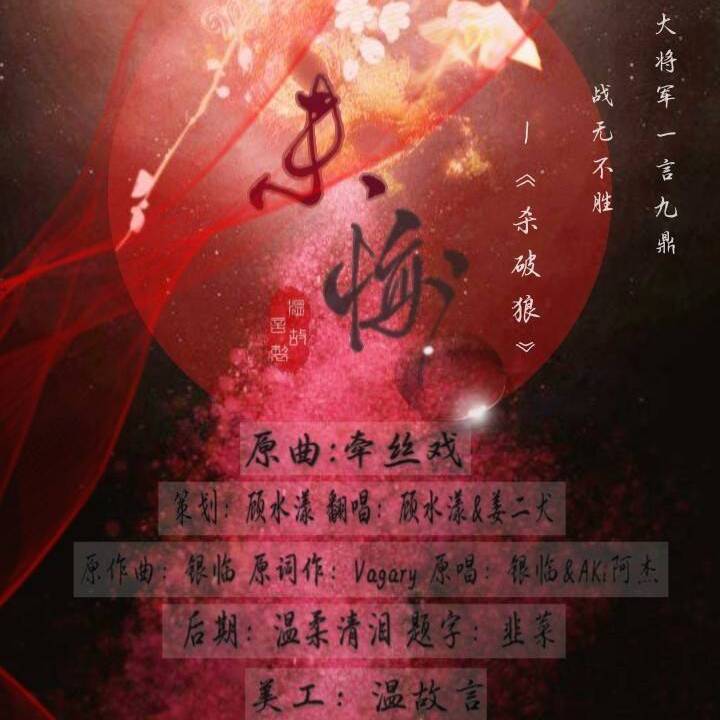 大将军一言九鼎
战无不胜
—《杀破狼》
未悔
原曲:牵丝戏
策划：顾水漾 翻唱：顾水漾&姜二犬
原作曲：银临 原词作：Vagary 原唱：银临&AKi阿杰
后期：温柔清泪 题字：韭菜
美工：温故言